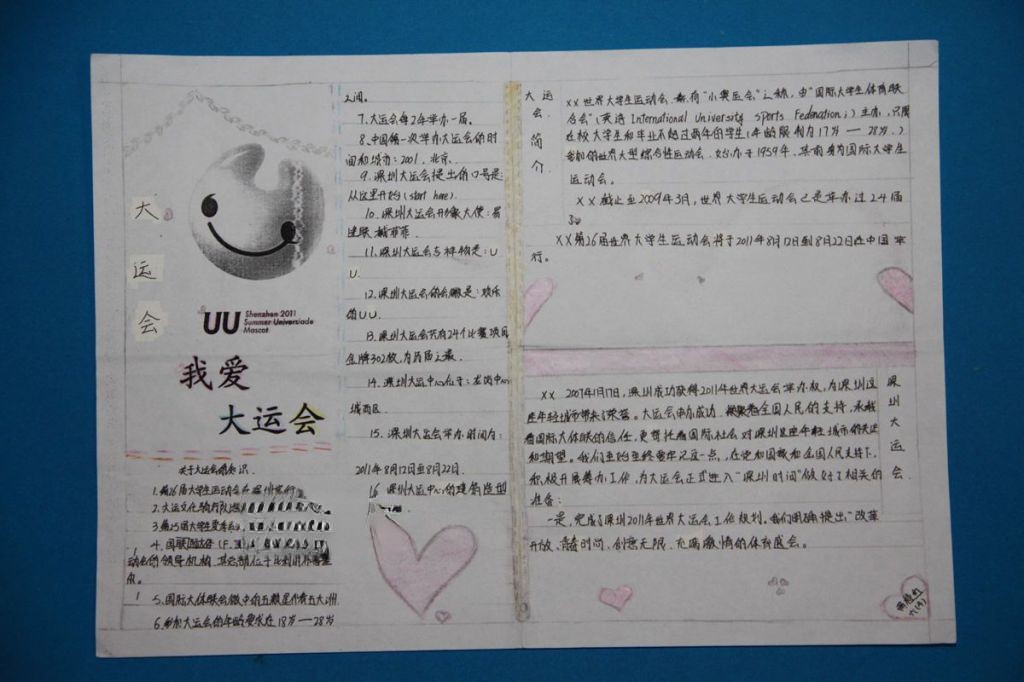 大
运
会
UU Shenzhen 2011
Summer Universiade
Mascot
我爱
大运会
关于大运会的知识.
1.第26届大学生运动会在深圳举行
2.大运文化
3.第25届大学生夏季
4.国际大体联（F.
动会的领导机构，其总部位于比利时布鲁塞
尔。
5.国际大体联会徽中的五颗星代表五大洲.
6.参加大运会的年龄要求在18岁—28岁
之间。
7.大运会每2年举办一届。
8.中国第一次举办大运会的时
间和城市：2001，北京.
9.深圳大运会提出的口号是：
从这里开始（start here).
10.深圳大运会形象大使：易
建联.
11.深圳大运会吉祥物是：U
U.
12.深圳大运会的会徽是：欢乐
的UU.
13.深圳大运会共有24个比赛项目
金牌302枚，为历届之最.
14.深圳大运中心位于：龙岗中心
城西区.
15.深圳大运会举办时间为：
2011年8月12日至8月22日.
16.深圳大运中心的建筑造型
大运会简介
××世界大学生运动会，素有“小奥运会”之称，由“国际大学生体育联
合会”（英语International University Sports Federation;）主办，只限
在校大学生和毕业不超过两年的学生（年龄限制为17岁—28岁，）
参加的世界大型综合性运动会.始办于1959年，其前身为国际大学生
运动会。
××截止至2009年3月，世界大学生运动会已是举办过24届
了.
××第26届世界大学生运动会将于2011年8月12日到8月22日在中国举
行。
深圳大运会
××2007年1月17日，深圳成功获得2011年世界大运会举办权，为深圳这
座年轻城市带来了荣誉。大运会申办成功，凝聚着全国人民的支持，承载
着国际大体联的信任，更寄托着国际社会对深圳这座年轻城市的关注
和期望。我们至始至终要牢记这一点，在党和国家和全国人民支持下，
积极开展筹办工作，为大运会正式进入“深圳时间”做好了相关的
准备：
一是，完成了深圳2011年世界大运会工作规划。我们明确提出“改革
开放、青春时尚、创意无限、充满激情的体育盛会。
六(4)